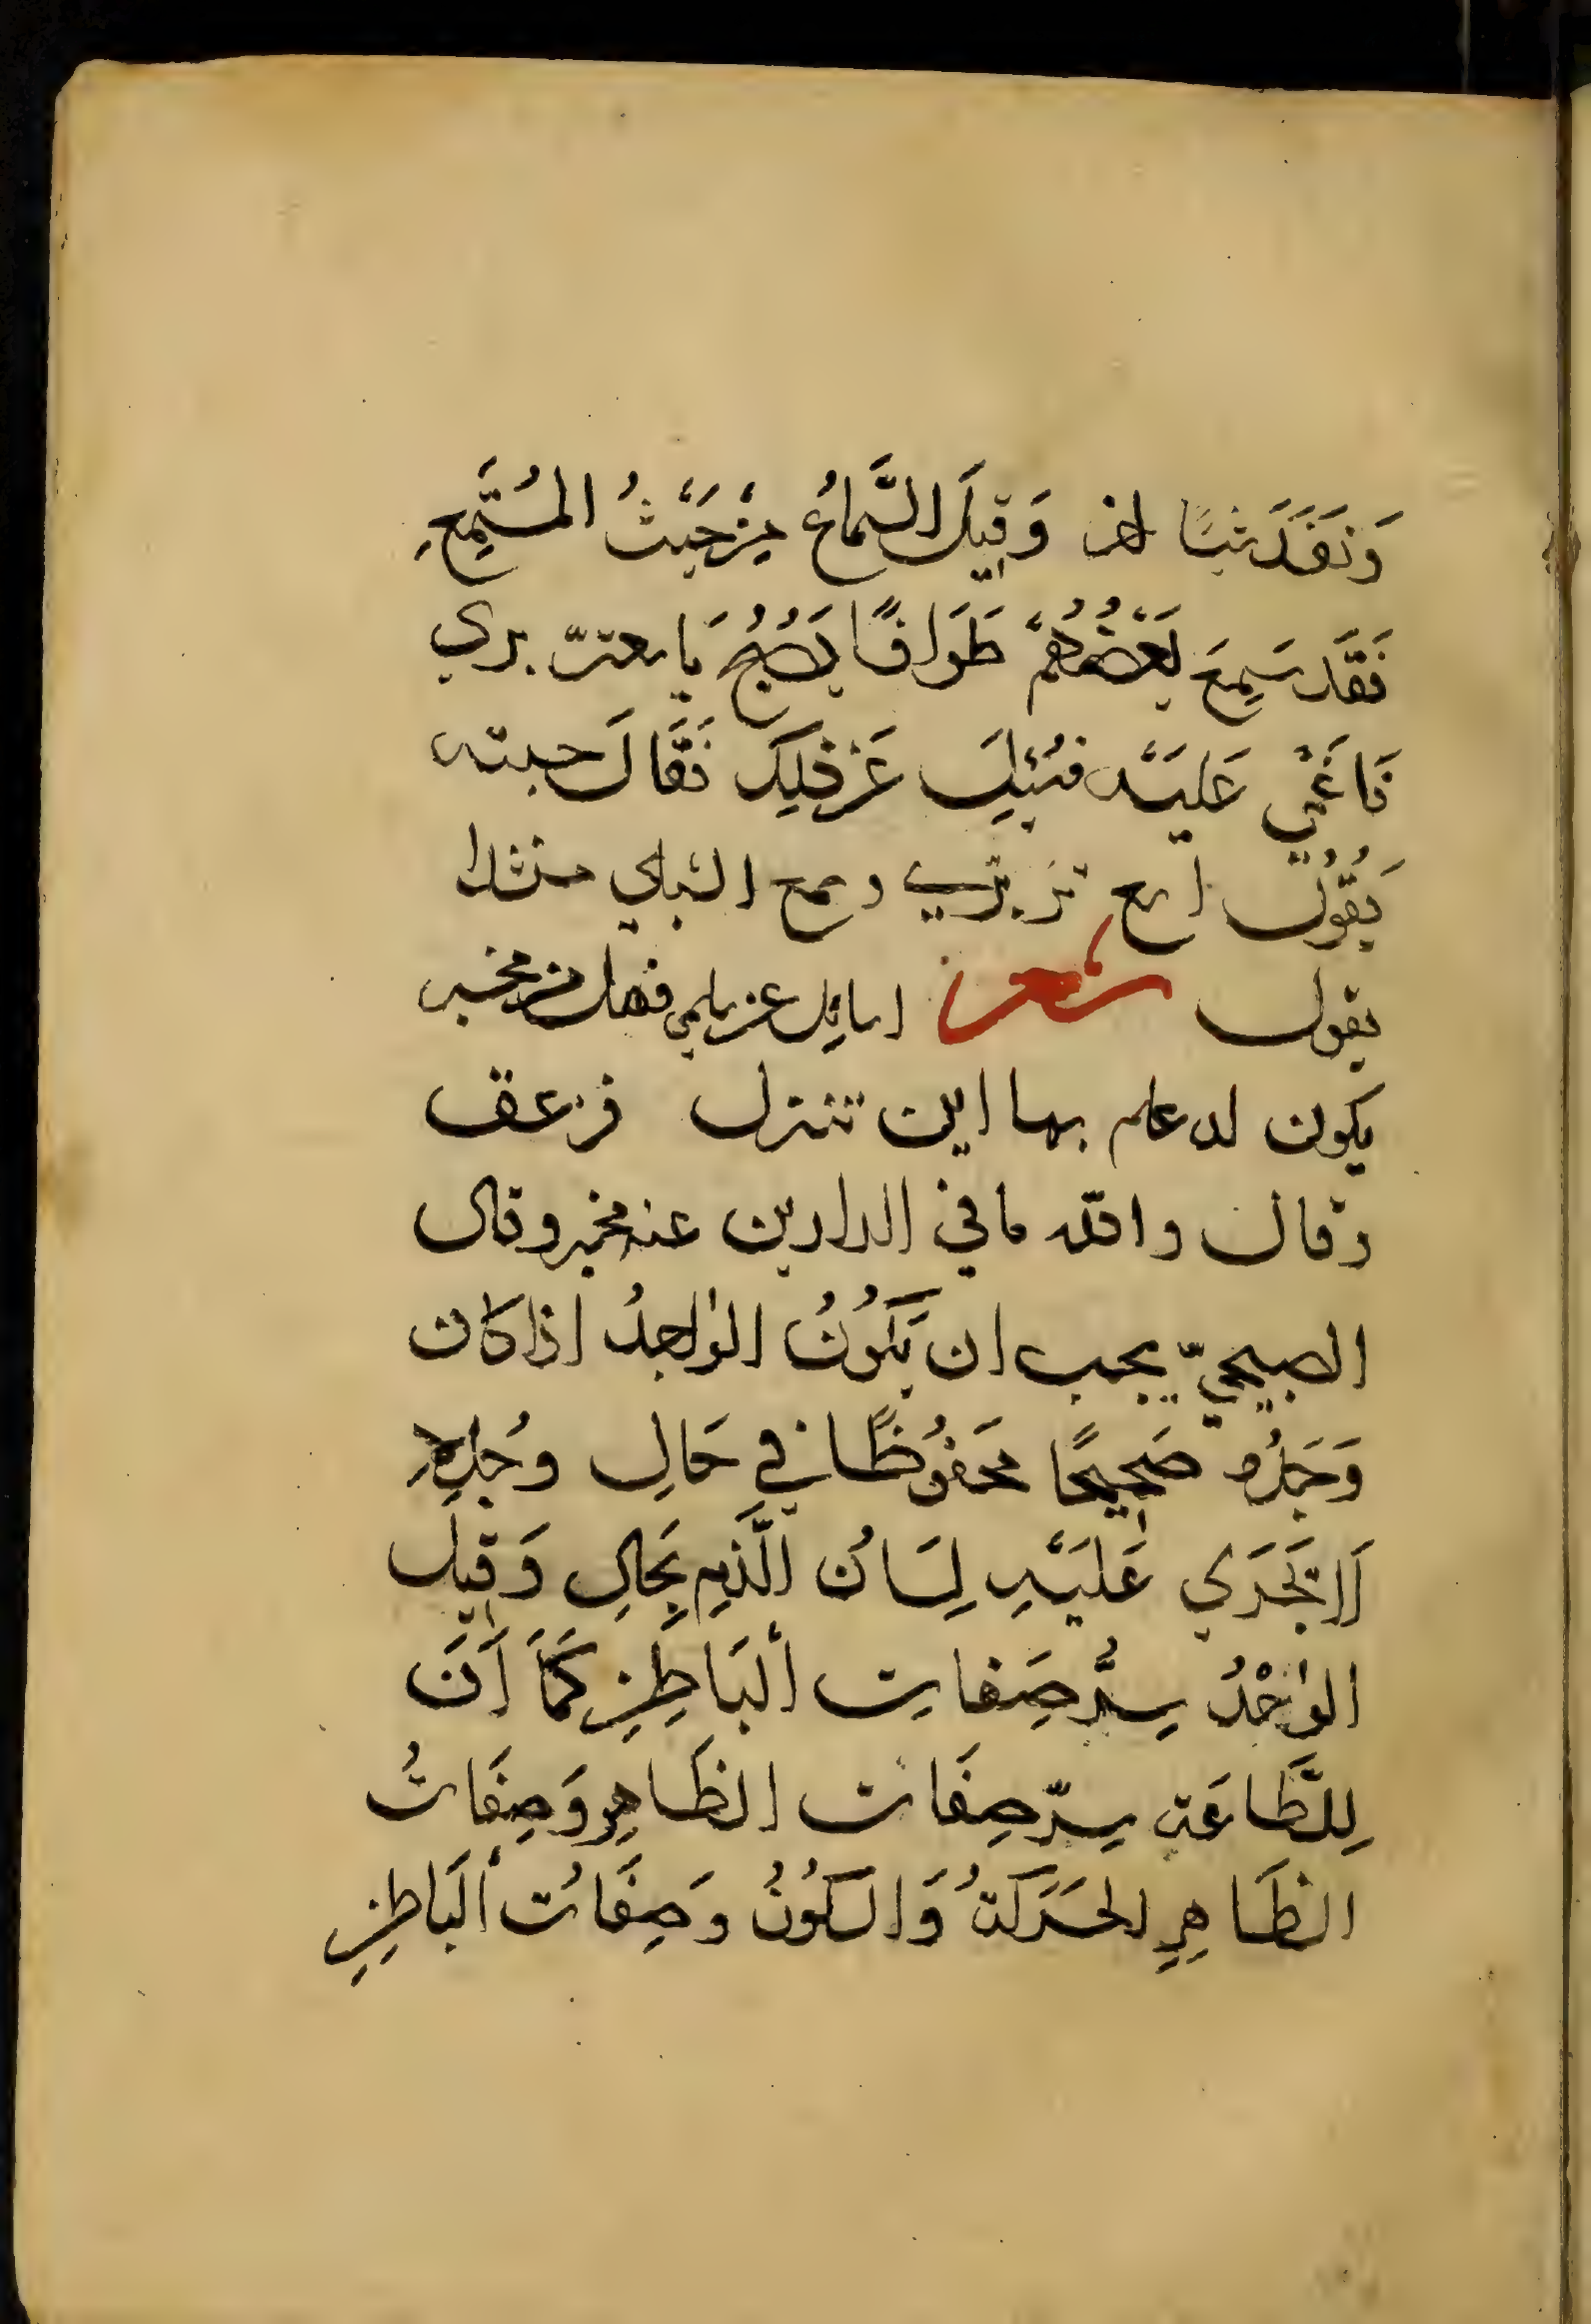 وَنَفَدَ شَيْئًا اخر وَقِيلَ السَّمَاعُ مِنْ حَيْثُ المُسْتَمِعِ
فَقَد سَمِعَ بَعْضُهُمْ طَوَافًا يَصِيحُ يَا سعتر بري
فَاغْمِيَ عَلَيْهِ فَسُئِلَ عَنْ ذلِكَ فَقَالَ حسبته
يَقُولُ اسع تر بري وسمع الشبلي منشدا
يقول شعر اسايل عن سلمى فهل من مخبر
يكون له علم بها اين تنزل فزعق
وقال والله ما في الدارين عنه مخبر وقال
الصبيحيّ يجب ان يَكُونُ الوَاجدُ اذا كان
وَجَدُه صَحِيحًا مَحفُوظًا في حَالِ وُجْدِهِ
لَا يَجْرَي عَلَيْهِ لِسَانُ الَّذِم بِحَالِ وَقِيلَ
الوَجْدُ سِرُّ صِفاتِ البَاطِنِ كَمَا اَنَّ
لِلطَّاعَة سِرّ صِفَات الظَاهِرِ وَصِفَاتُ
الظَاهِرِ الحَرَكَةُ وَالسكُونُ وَصِفَاتُ البَاطِنِ